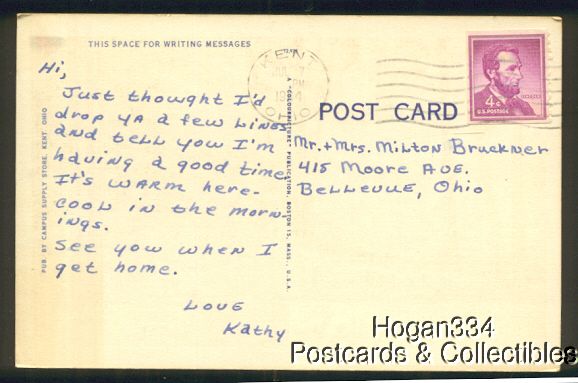 THIS SPACE FOR WRITING MESSAGES
Hi,
Just thought I'd
drop ya a few lines
and tell you I'm
having a good time.
It's warm here-
cool in the morn-
ings.
See you when I
get home.
Love
Kathy
PUB. BY CAMPUS SUPPLY STORE, KENT, OHIO
PUBLICATION BOSTON 15, MASS., U.S.A.
KENT
PM
OHIO
4¢
U.S. POSTAGE
POST CARD
Mr. + Mrs. Milton Bruckner
415 Moore Ave.
Bellevue, Ohio
Hogan334
Postcards & Collectibles